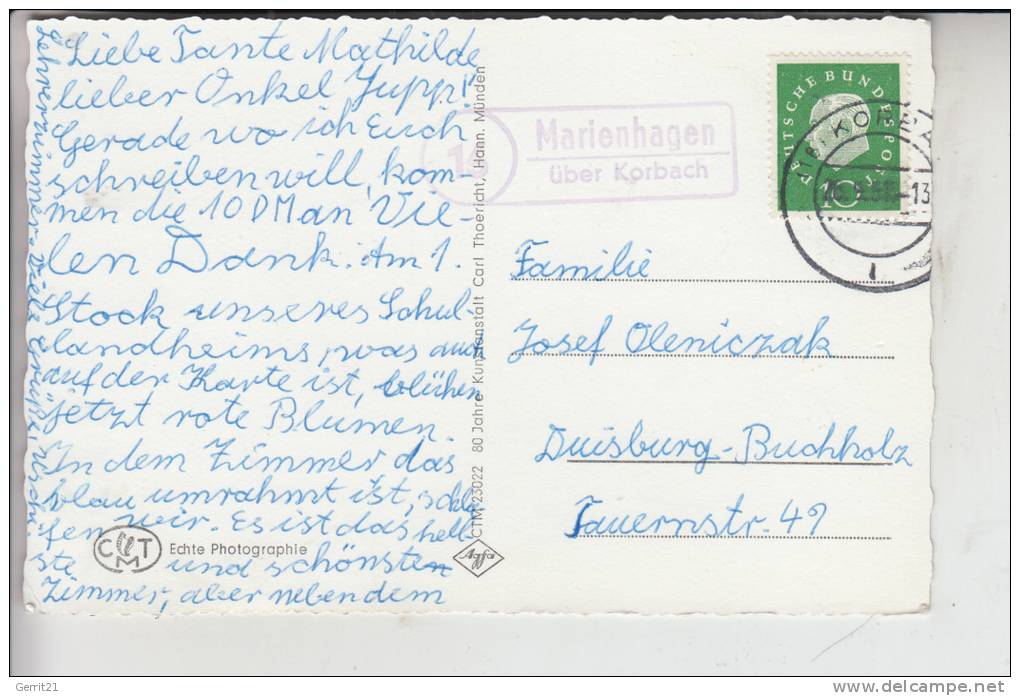 Liebe Tante Mathilde
lieber Onkel Jupp!
Gerade wo ich Euch
schreiben will, kom-
men die 10 DM an Vie-
len Dank. Am 1.
Stock unseres Schul-
landheims, was auch
auf der Karte ist, blühen
jetzt rote Blumen.
In dem Zimmer das
blau umrahmt ist, schla
fen wir. Es ist das hell
ste und schönste
Zimmer, aber neben dem
Lehrerzimmer. Viele Grüße,
Echte Photographie
C M T
Agfa
CTM 23022 80 Jahre Kunstanstalt Carl Thoericht, Hann. Münden
16
Marienhagen
über Korbach
DEUTSCHE BUNDESPOST
10
KORBA
13
Familie
Josef Oleniczak
Duisburg-Buchholz
Tauernstr. 49
Gerrit21
www.delcampe.net